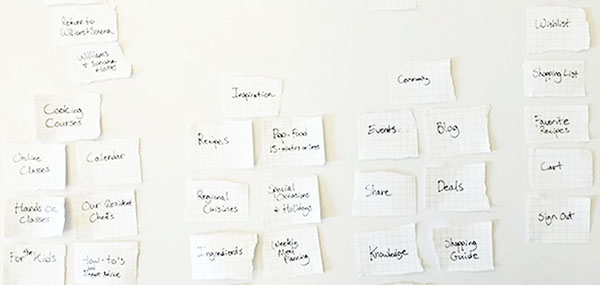 Return to
Williams Sonoma
Williams
+ Sonoma
Home
Cooking
Courses
Online
Classes
Calendar
Hands On
Classes
Our Resident
Chefs
For the Kids
How-to's
and
Advice
Inspiration
Recipes
Pop-Food
15-minutes or less
Regional
Cuisines
Special
Occasions
+ Holidays
Ingredients
Weekly
Meal
Planning
Community
Events
Blog
Share
Deals
Knowledge
Shopping
Guide
Wishlist
Shopping List
Favorite
Recipes
Cart
Sign Out